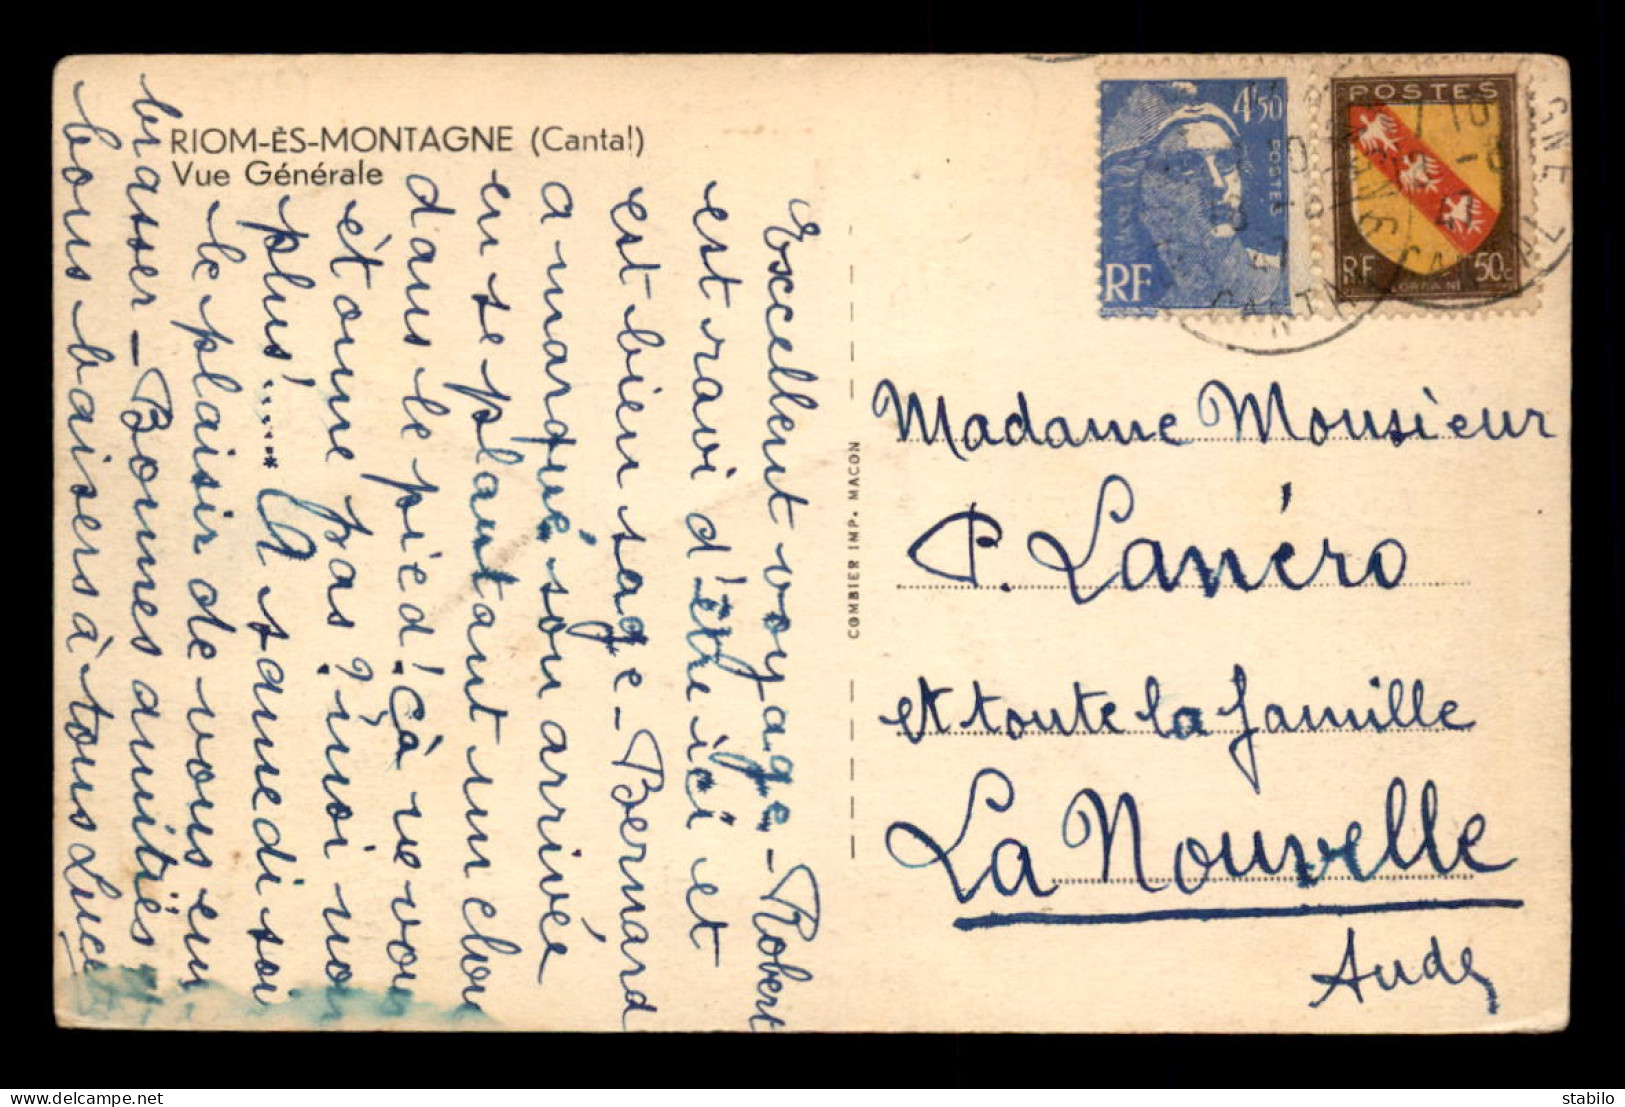 RIOM-ÈS-MONTAGNE (Cantal)
Vue Générale
Excellent voyage - Robert
est ravi d'être ici et
est bien sage - Bernard
a marqué son arrivée
en se plantant un clou
dans le pied! Cà ne vous
étonne pas? moi non
plus!..... A samedi soir
le plaisir de vous em
brasser - Bonnes amitiés
bons baisers à tous Luce
COMBIER IMP. MACON
4f50
POSTES
RF
POSTES
RF
50c
LORRAINE
CANTAL
Madame Monsieur
P. Lanéro
et toute la famille
La Nouvelle
Aude
delcampe.net
stabilo